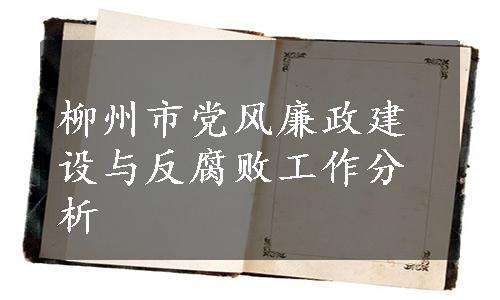 柳州市党风廉政建
设与反腐败工作分
析